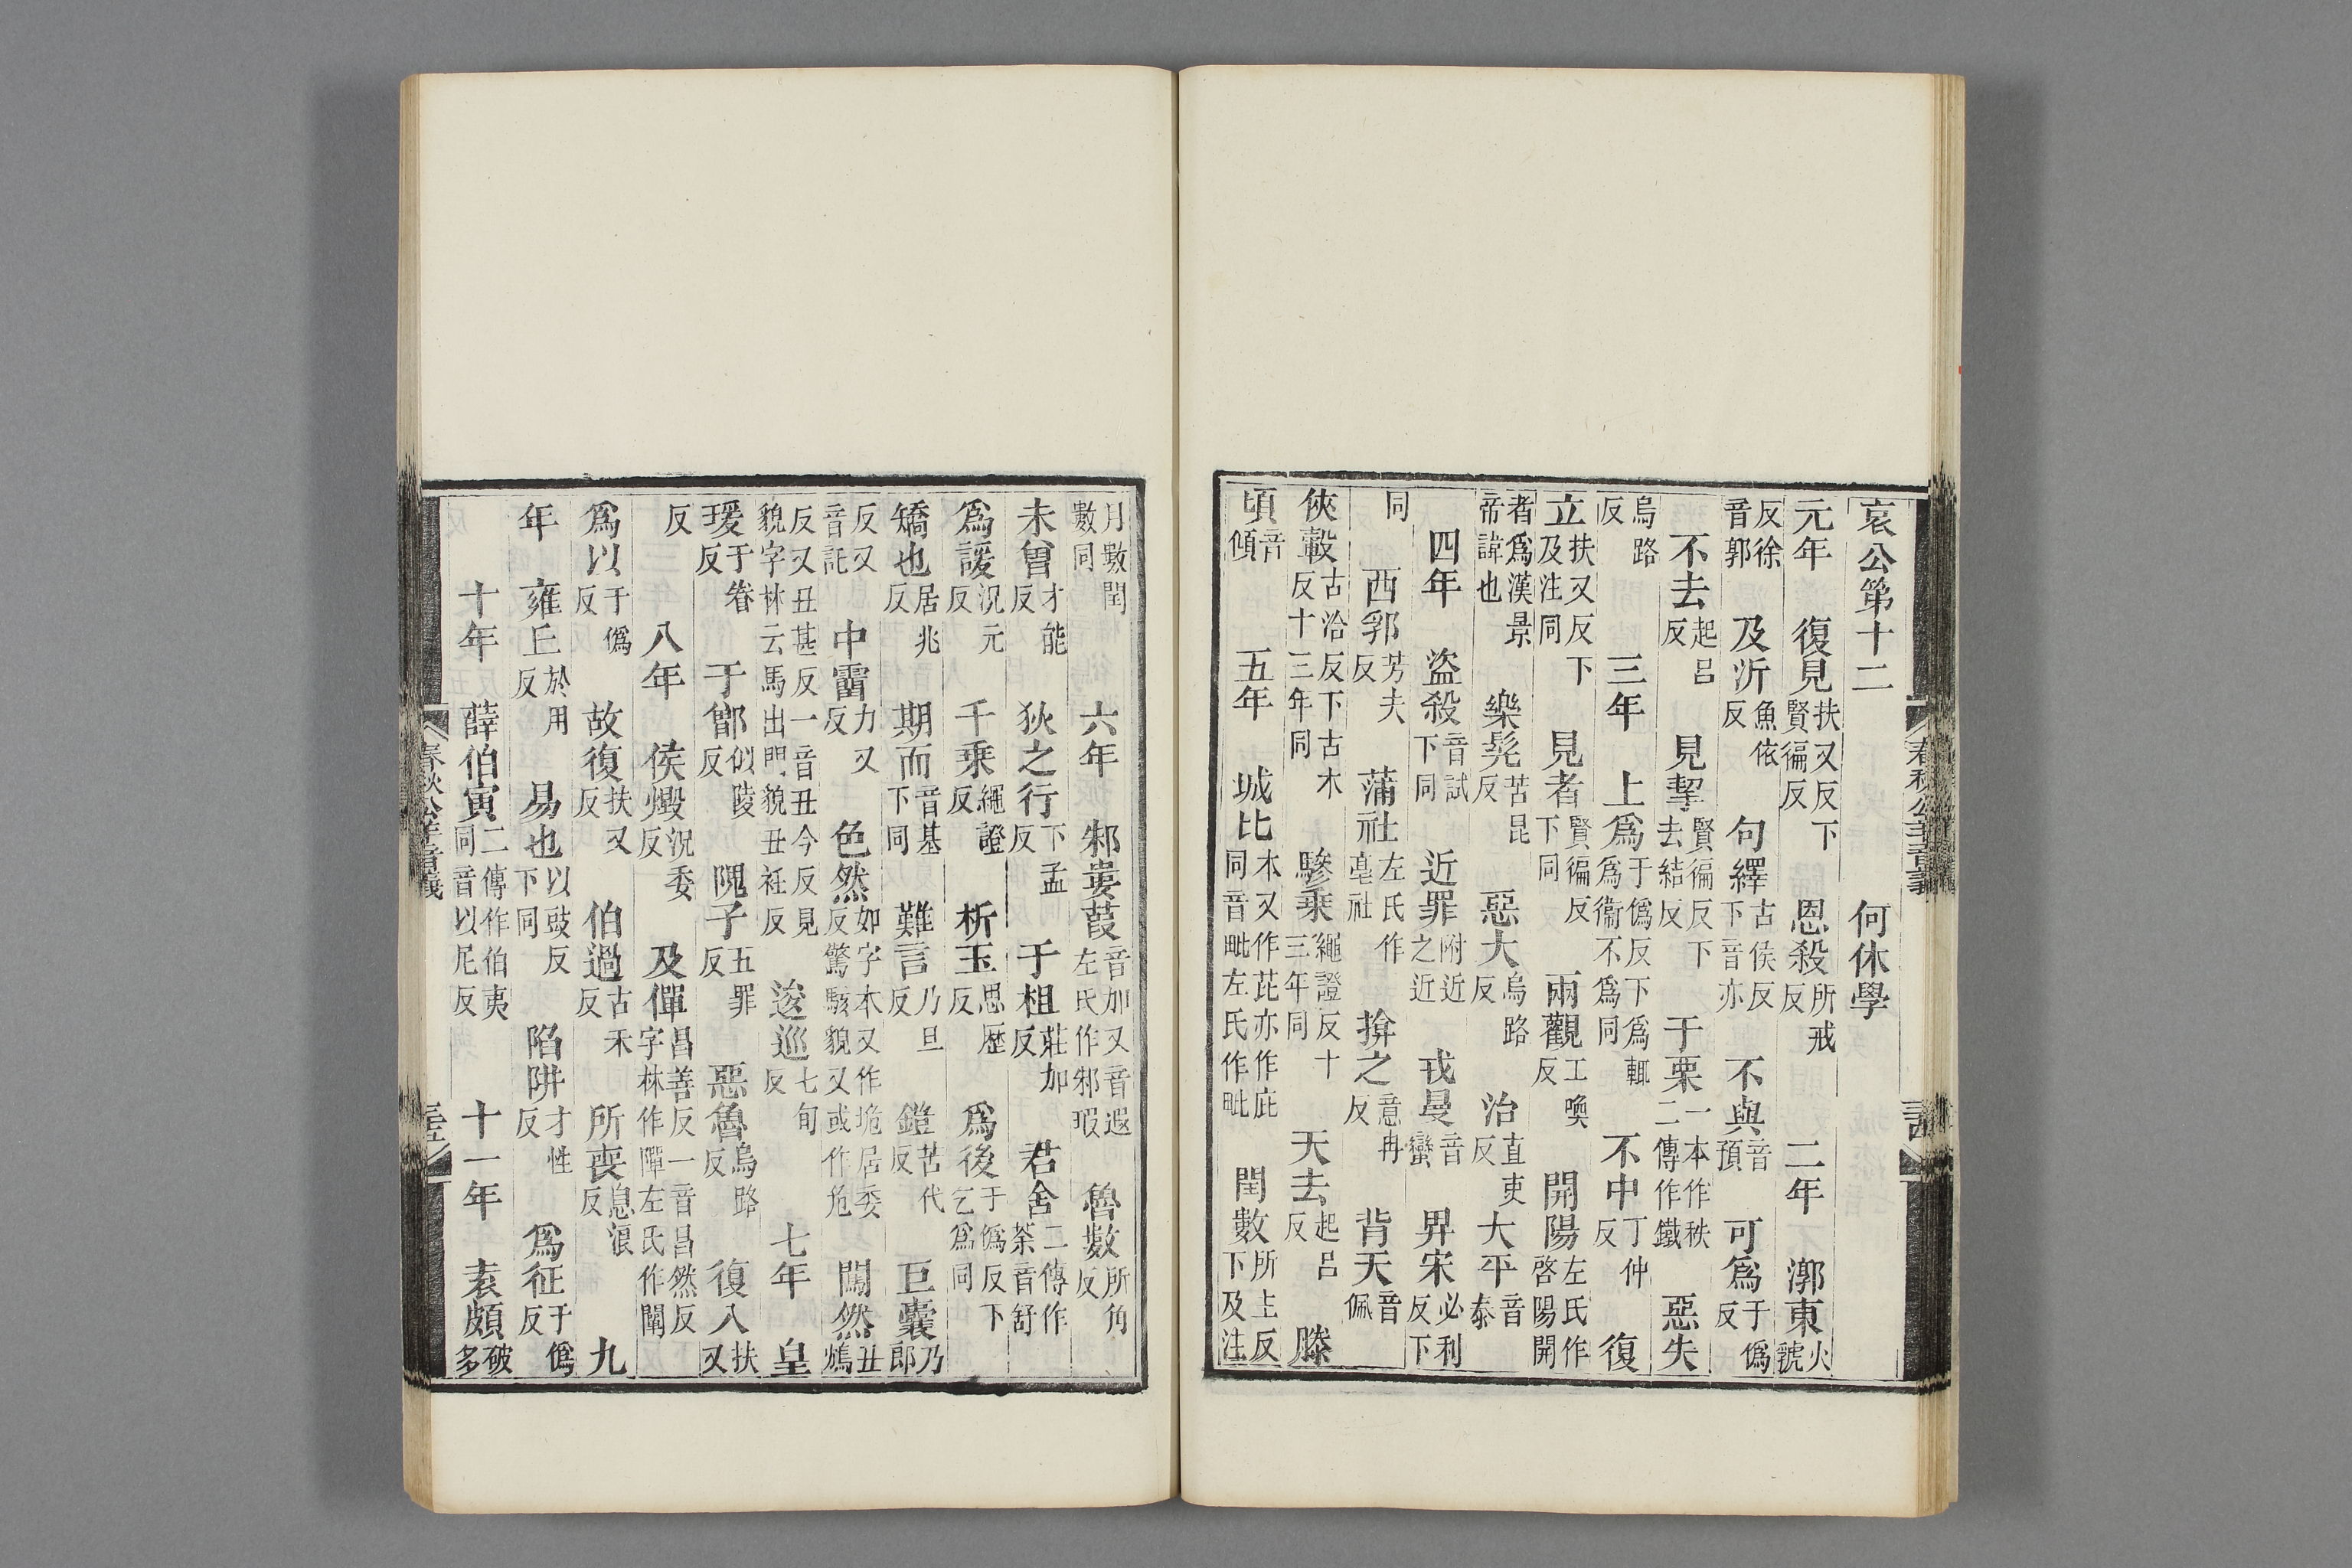 哀公第十二 何休學
元年 復見扶又反下賢徧反 恩殺所戒反 二年 漷東火虢
反徐音郭 及沂魚依反 句繹古侯反下音亦 不與音預 可爲于僞反
不去起呂反 見挈賢徧反下去結反 于栗一本作秩二傳作鐵 惡失
烏路反 三年 上爲于僞反下爲輒爲衞不爲同 不中丁仲反 復
立扶又反下及注同 見者賢徧反下同 兩觀工喚反 開陽左氏作啓陽開
者爲漢景帝諱也 樂髡苦昆反 惡大烏路反 治直吏反 大平音泰
四年 盜殺音試下同 近罪附近之近 戎曼音蠻 畀宋必利反下
同 西郛芳夫反 蒲社左氏作亳社 揜之意冉反 背天音佩
俠轂古洽反下古木反十三年同 驂乗繩證反十三年同 天去起呂反 滕
頃音傾 五年 城比本又作芘亦作庇同音毗左氏作毗 閏數所主反下及注
春秋公羊音義
月數閏數同 六年 邾婁葭音加又音遐左氏作邾瑕 魯數所角反
未曾才能反 狄之行下孟反 于柤莊加反 君舍二傳作荼音舒
爲諼況元反 千乗繩證反 析玉思歷反 爲後于僞反下乞爲同
矯也居兆反 期而音基下同 難言乃旦反 鎧苦代反 巨囊乃郎
反又音託 中霤力又反 色然如字本又作垝居委反驚駭貌又或作危 闖然丑鴆
反又丑甚反一音丑今反見貌字林云馬出門貌丑衽反 逡巡七旬反 七年 皇
瑗于眷反 于鄫似陵反 隗子五罪反 惡魯烏路反 復入扶又
反 八年 侯燬況委反 及僤昌善反一音昌然反字林作嘽左氏作闡
爲以于僞反 故復扶又反 伯過古禾反 所喪息浪反 九
年 雍丘於用反 易也以豉反下同 陷阱才性反 爲征于僞反
十年 薛伯寅二傳作伯夷同音以尼反 十一年 袁頗破多
春秋公羊音義